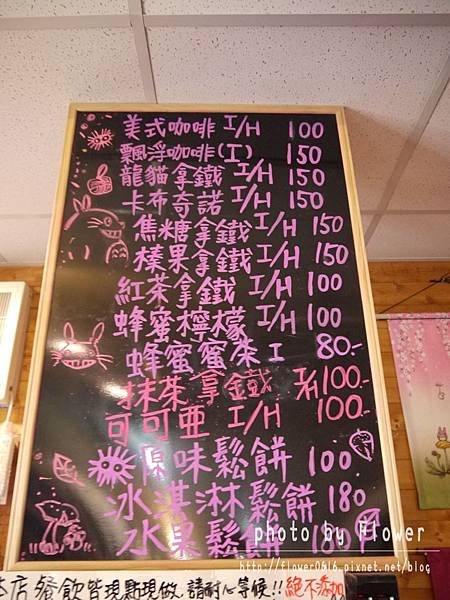 美式咖啡 I/H 100
飄浮咖啡(I) 150
龍貓拿鐵 I/H 150
卡布奇諾 I/H 150
焦糖拿鐵 I/H 150
榛果拿鐵 I/H 150
紅茶拿鐵 I/H 100
蜂蜜檸檬 I/H 100
蜂蜜蜜茶 I 80.-
抹茶拿鐵 I/H 100.-
可可亞 I/H 100.-
原味鬆餅 100
冰淇淋鬆餅 180
水果鬆餅 180
photo by Flower
http://flower0616.pixnet.net/blog
本店餐飲皆現點現做、請耐心等候!!絕不添加